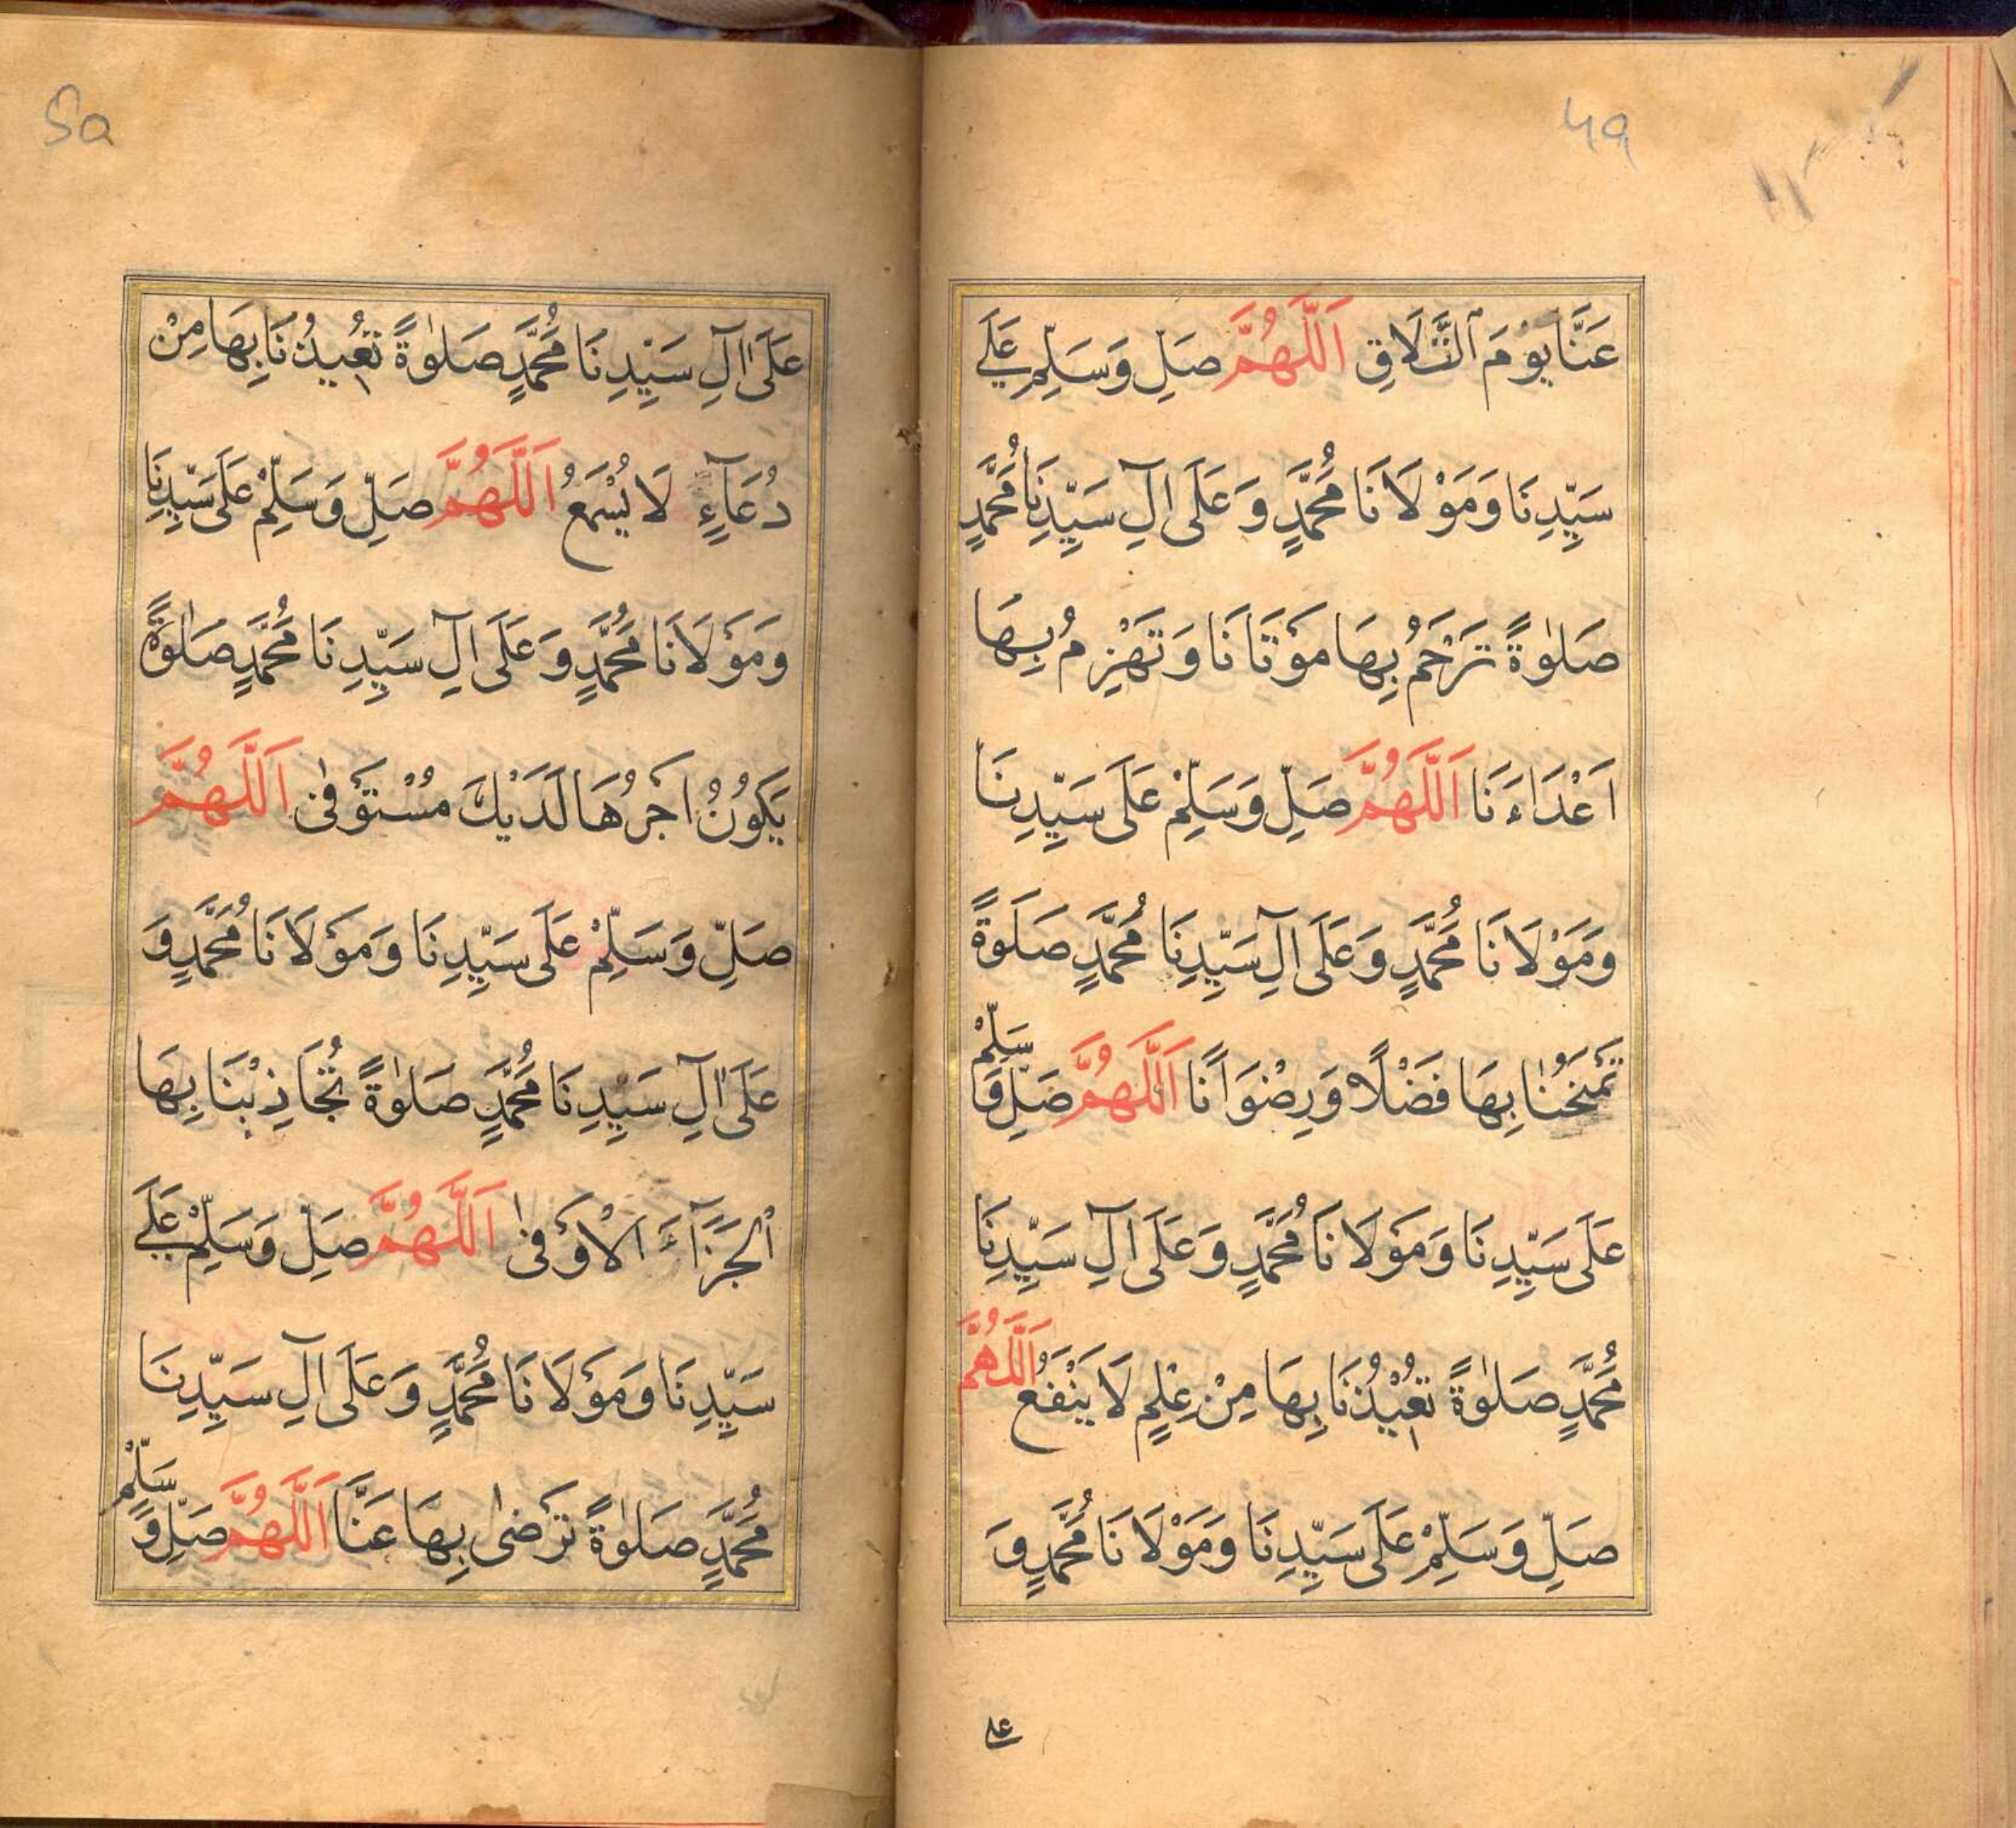 49
عَنَّا يَوْمَ التَّلَاقِ اَللّٰهُمَّ صَلِّ وَسَلِّمْ عَلٰى
سَيِّدِنَا وَمَوْلَانَا مُحَمَّدٍ وَعَلَى اٰلِ سَيِّدِنَا مُحَمَّدٍ
صَلٰوةً تَرْحَمُ بِهَا مَوْتَانَا وَتَهْزِمُ بِهَا
اَعْدَاءَنَا اَللّٰهُمَّ صَلِّ وَسَلِّمْ عَلَى سَيِّدِنَا
وَمَوْلَانَا مُحَمَّدٍ وَعَلَى اٰلِ سَيِّدِنَا مُحَمَّدٍ صَلٰوةً
تَمْنَحُنَا بِهَا فَضْلًا وَرِضْوَانًا اَللّٰهُمَّ صَلِّ وَسَلِّمْ
عَلَى سَيِّدِنَا وَمَوْلَانَا مُحَمَّدٍ وَعَلَى اٰلِ سَيِّدِنَا
مُحَمَّدٍ صَلٰوةً تُعِيْذُنَا بِهَا مِنْ عِلْمٍ لَا يَنْفَعُ اَللّٰهُمَّ
صَلِّ وَسَلِّمْ عَلَى سَيِّدِنَا وَمَوْلَانَا مُحَمَّدٍ وَ
على
5a
عَلَى اٰلِ سَيِّدِنَا مُحَمَّدٍ صَلٰوةً تُعِيذُنَا بِهَا مِنْ
دُعَآءٍ لَا يُسْمَعُ اَللّٰهُمَّ صَلِّ وَسَلِّمْ عَلَى سَيِّدِنَا
وَمَوْلَانَا مُحَمَّدٍ وَعَلَى اٰلِ سَيِّدِنَا مُحَمَّدٍ صَلٰوةً
يَكُونُ اَجْرُهَا لَدَيْكَ مُسْتَوْفٰى اَللّٰهُمَّ
صَلِّ وَسَلِّمْ عَلَى سَيِّدِنَا وَمَوْلَانَا مُحَمَّدٍ وَ
عَلَى اٰلِ سَيِّدِنَا مُحَمَّدٍ صَلٰوةً تُجَاذِبْنَا بِهَا
الْجَزَآءَ الْاَوْفٰى اَللّٰهُمَّ صَلِّ وَسَلِّمْ عَلٰى
سَيِّدِنَا وَمَوْلَانَا مُحَمَّدٍ وَعَلَى اٰلِ سَيِّدِنَا
مُحَمَّدٍ صَلٰوةً تَرْضٰى بِهَا عَنَّا اَللّٰهُمَّ صَلِّ وَسَلِّمْ